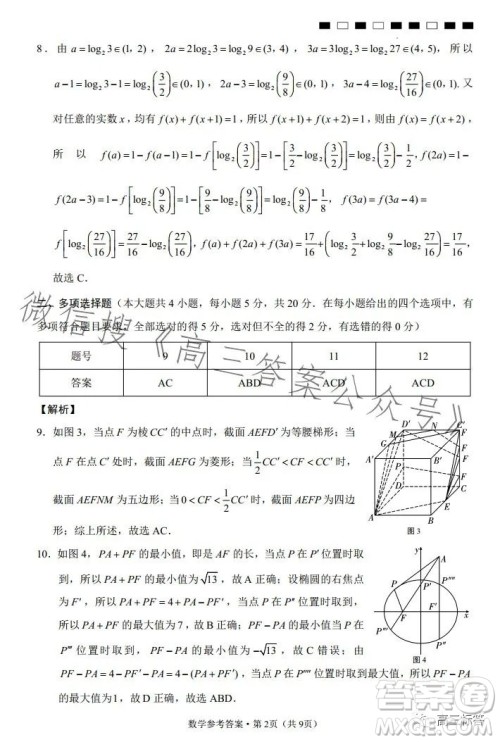 8．由 a=log₂3∈(1, 2)，2a=2log₂3=log₂9∈(3, 4)，3a=3log₂3=log₂27∈(4, 5)，所以
a−1=log₂3−1=log₂(3/2)∈(0, 1)，2a−3=log₂(9/8)∈(0, 1)，3a−4=log₂(27/16)∈(0, 1). 又
对任意的实数 x，均有 f(x)+f(x+1)=1，所以 f(x+1)+f(x+2)=1，则由 f(x)=f(x+2)，
所以 f(a)=1−f(a−1)=1−f[log₂(3/2)]=1−[3/2−log₂(3/2)]=log₂(3/2)−1/2，f(2a)=1−
f(2a−3)=1−f[log₂(9/8)]=1−[9/8−log₂(9/8)]=log₂(9/8)−1/8，f(3a)=f(3a−4)=
f[log₂(27/16)]=27/16−log₂(27/16)，所以 f(a)+f(2a)+f(3a)=17/16+log₂(3/2)+log₂(9/8)−log₂(27/16)=17/16，
故选 C．
二、多项选择题（本大题共 4 小题，每小题 5 分，共 20 分．在每小题给出的四个选项中，有
多项符合题目要求，全部选对的得 5 分，部分选对的得 2 分，有选错的得 0 分）
题号 9 10 11 12
答案 AC ABD ACD ACD
【解析】
9．如图 3，当点 F 为棱 CC′ 的中点时，截面 AEFD′ 为等腰梯形；当
点 F 在点 C′ 处时，截面 AEFG 为菱形；当 1/2CC′<CF<CC′ 时，
截面 AEFNM 为五边形；当 0<CF<1/2CC′ 时，截面 AEFP 为四边
形；综上所述，故选 AC．
图 3
10．如图 4，PA+PF 的最小值，即是 AF 的长，当点 P 在 P′ 位置时取
到，所以 PA+PF 的最小值为 √13，故 A 正确；设椭圆的右焦点
为 F′，所以 PA+PF=4+PA−PF′，当点 P 在 P″ 位置时取到，
所以 PA+PF 的最大值为 7，故 B 正确；PF−PA 的最小值，当
P 在 P‴ 位置时取到，所以 PF−PA 的最小值为 −√13，故 C 错误；由
PA+PF=4+PA−PF′，则 PF−PA=4−PF′−PA=4−(PF′+PA)，当点 P 在 P⁗ 位置时取到，所以 PF−PA
的最大值为 1，故 D 正确，故选 ABD．
图 4
数学参考答案・第 2 页（共 9 页）
微信搜《高三答案公众号》